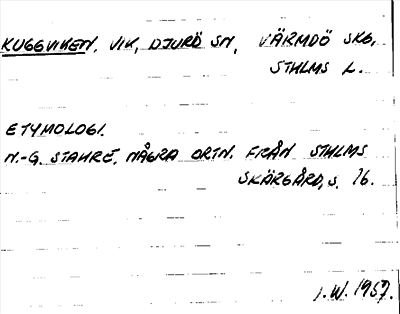 KUGGVIKEN. VIK, DJURÖ SN, VÄRMDÖ SKG,
STHLMS L.
ETYMOLOGI.
N.-G. STAHRE. NÅGRA ORTN. FRÅN STHLMS
SKÄRGÅRD, s. 16.
I.W. 1957.